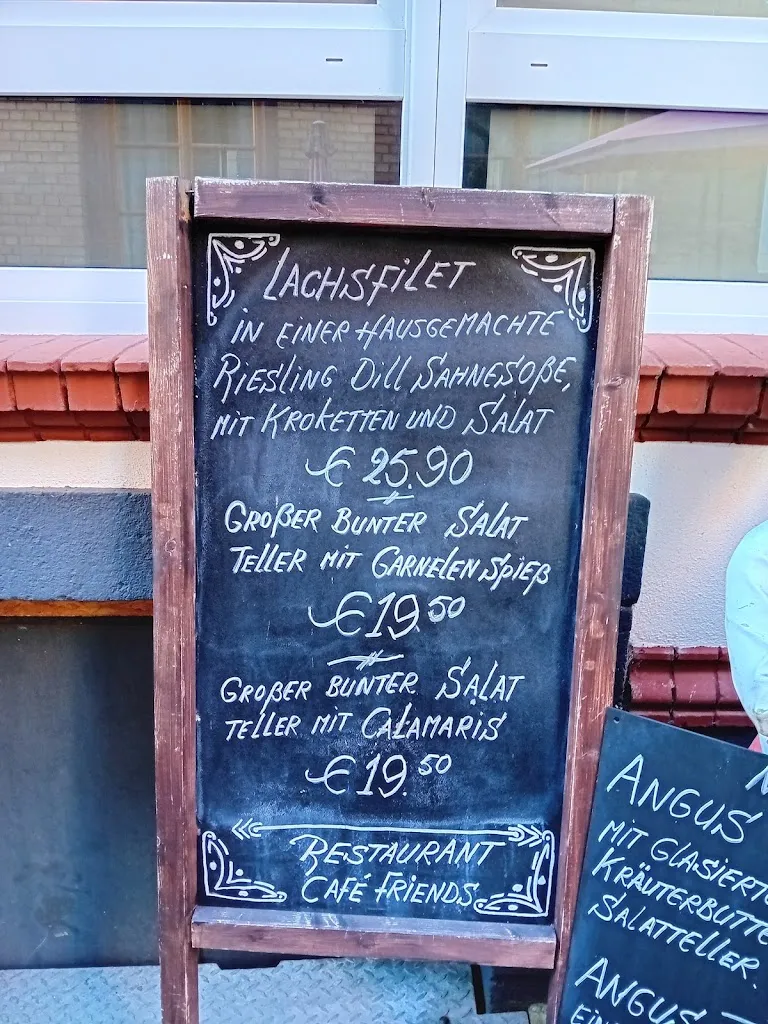 LACHSFILET
IN EINER HAUSGEMACHTE
RIESLING DILL SAHNESOßE,
MIT KROKETTEN UND SALAT
€ 25.90
GROßER BUNTER SALAT
TELLER MIT GARNELEN SPIEß
€ 19.50
GROßER BUNTER SALAT
TELLER MIT CALAMARIS
€ 19.50
RESTAURANT
CAFÉ FRIENDS
ANGUS
MIT GLASIERTE
KRÄUTERBUTTE
SALATTELLER.
ANGUS